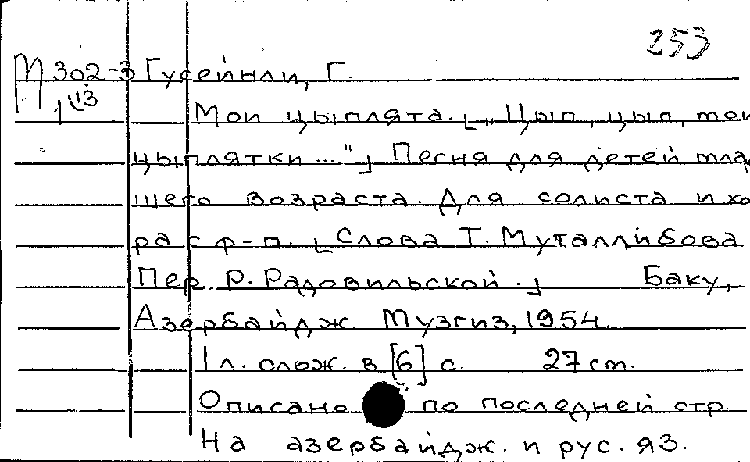 253
М 302-3 Гусейнли, Г.
1/13
Мои цыплята. [„Цып, цып, мои
цыплятки..."] Песня для детей млад
шего возраста. Для солиста и хо
ра с ф-п. [Слова Т. Муталлибова
Пер. Р. Радовильской.] Баку,
Азербайдж. Музгиз, 1954.
1 л. слож. в [6] с. 27 cm.
Описано по последней стр
На азербайдж. и рус. яз.